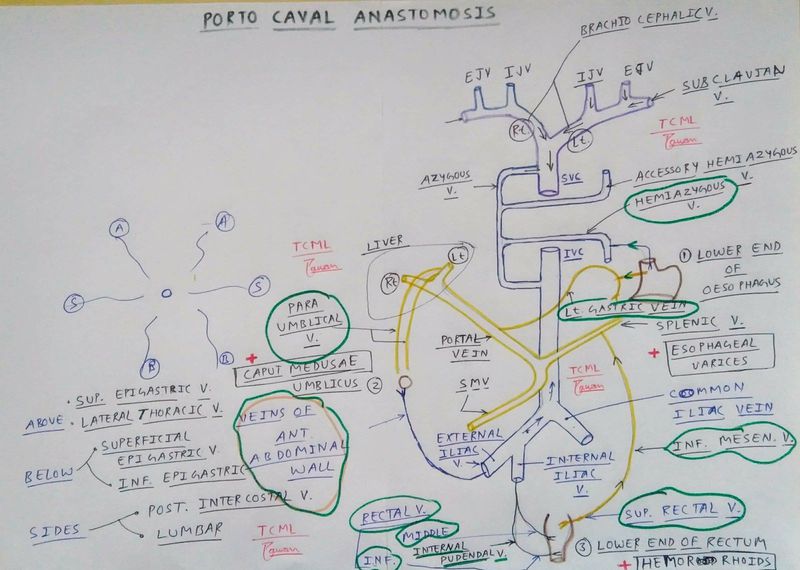 PORTO CAVAL ANASTOMOSIS
BRACHIO CEPHALIC V.
EJV
IJV
IJV
EJV
SUBCLAVIAN
V.
Rt.
Lt.
TCML
SVC
AZYGOUS
V.
ACCESSORY HEMIAZYGOUS
V.
HEMIAZYGOUS
V.
LIVER
Lt
Rt
IVC
① LOWER END
OF
OESOPHAGUS
Lt. GASTRIC VEIN
SPLENIC V.
+ ESOPHAGEAL
VARICES
A
A
S
S
B
B
TCML
PARA
UMBLICAL
V.
+ CAPUT MEDUSAE
UMBLICUS ②
PORTAL
VEIN
SMV
TCML
COMMON
ILIAC VEIN
EXTERNAL
ILIAC
V.
INTERNAL
ILIAC
V.
INF. MESEN. V.
ABOVE
• SUP. EPIGASTRIC V.
• LATERAL THORACIC V.
BELOW
SUPERFICIAL
EPIGASTRIC V.
INF. EPIGASTRIC
SIDES
POST. INTERCOSTAL V.
LUMBAR
VEINS OF
ANT.
ABDOMINAL
WALL
TCML
RECTAL V.
MIDDLE
INTERNAL
PUDENDAL V.
INF.
SUP. RECTAL V.
③ LOWER END OF RECTUM
+ HEMORRHOIDS